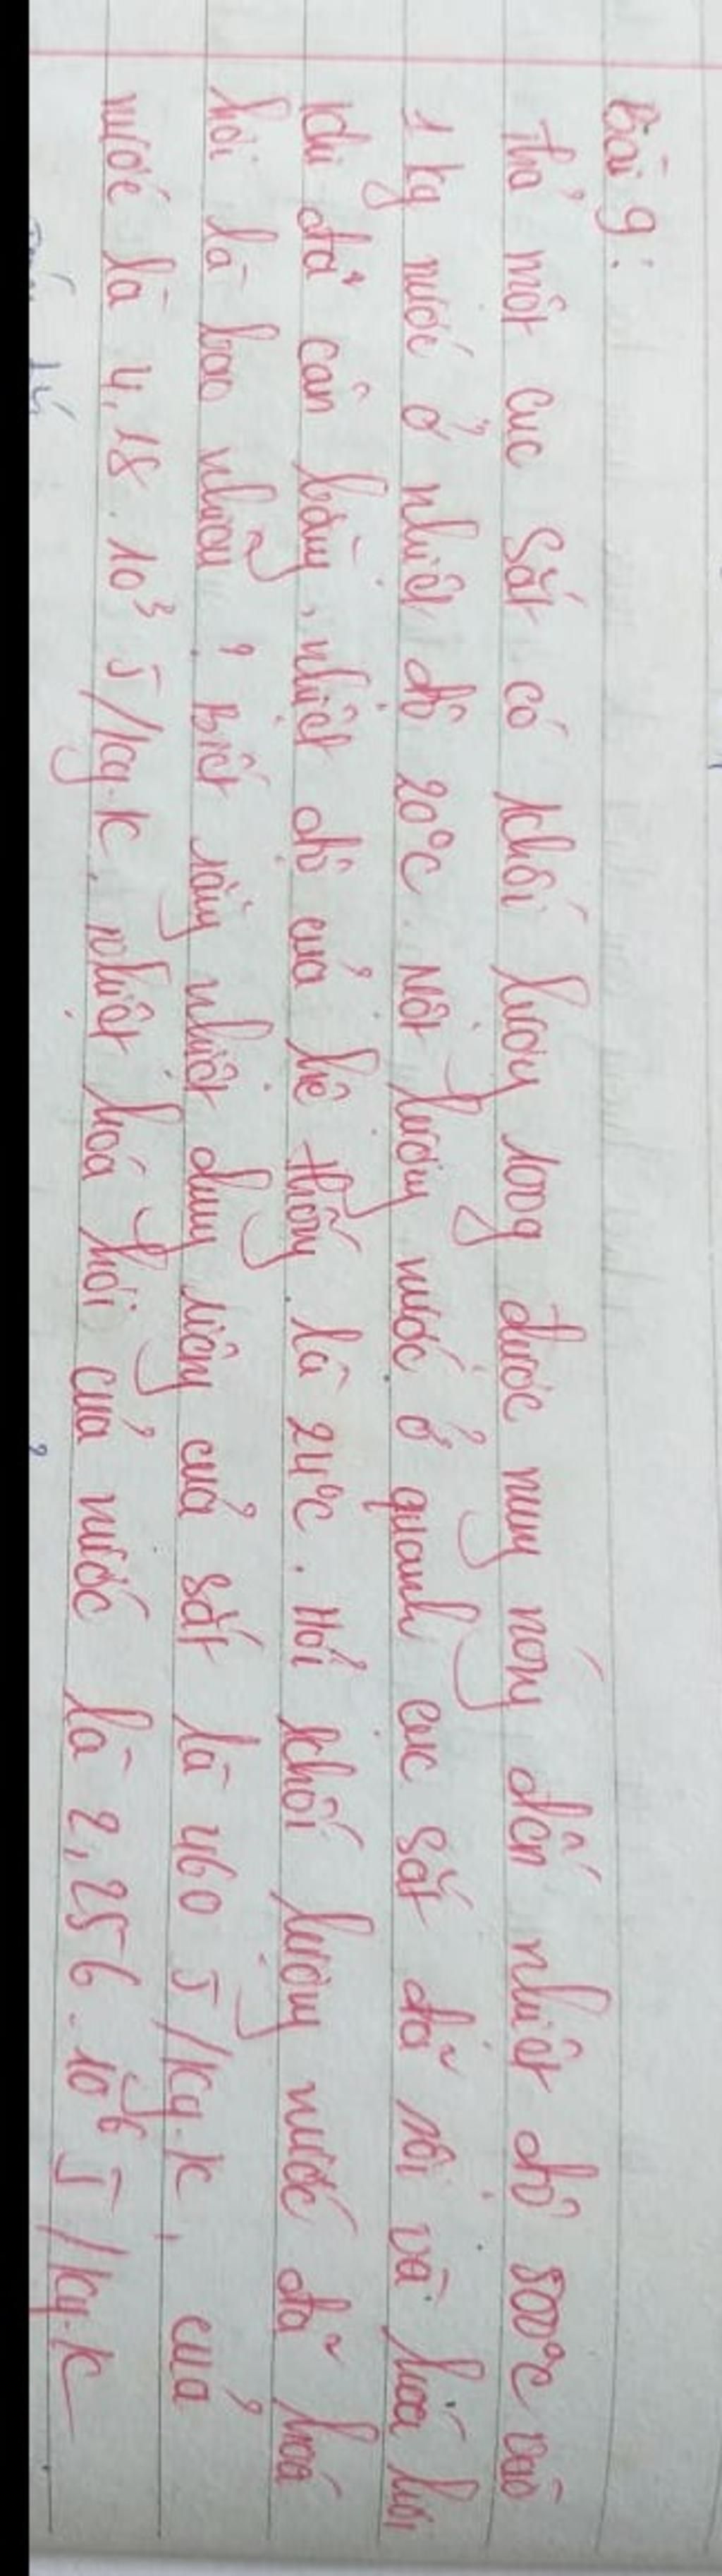 Bài 9:
Thả một cục sắt có khối lượng 100g được nung nóng đến nhiệt độ 500°C vào
1 kg nước ở nhiệt độ 20°C. Một lượng nước ở quanh cục sắt đã sôi và hóa hơi
khi đã cân bằng, nhiệt độ của hệ thống là 24°C. Hỏi khối lượng nước đã hoá
hơi là bao nhiêu? Biết rằng nhiệt dung riêng của sắt là 460 J/kg.K, của
nước là 4,18.10³ J/kg.K, nhiệt hoá hơi của nước là 2,256.10⁶ J/kg.K